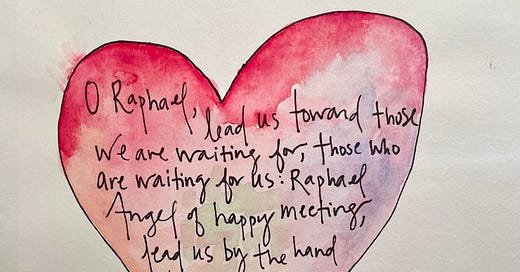 O Raphael,
lead us toward those
we are waiting for, those who
are waiting for us: Raphael
Angel of happy meeting,
lead us by the hand